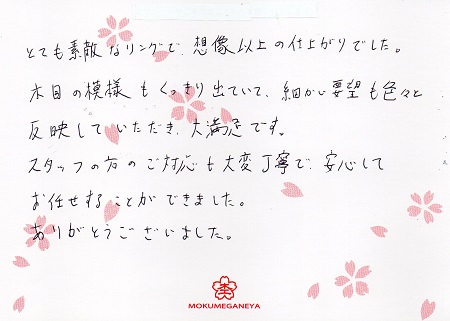 とても素敵なリングで、想像以上の仕上がりでした。
木目の模様もくっきり出ていて、細かい要望も色々と
反映していただき、大満足です。
スタッフの方のご対応も大変丁寧で、安心して
お任せすることができました。
ありがとうございました。
杢
MOKUMEGANEYA